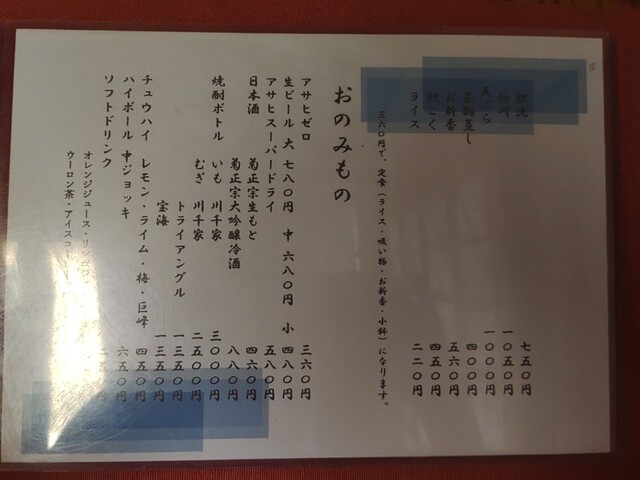 鯉洗 七五〇円
柳川 一〇五〇円
天ぷら 一〇〇〇円
茶碗蒸し 四〇〇円
お新香 五六〇円
鯉こく 四五〇円
ライス 二二〇円
三六〇円で、定食（ライス・吸い物・お新香・小鉢）になります。
おのみもの
アサヒゼロ 三六〇円
生ビール 大 七八〇円 中 六八〇円 小 四八〇円
アサヒスーパードライ 五八〇円
日本酒 菊正宗生もと 四六〇円
菊正宗大吟醸冷酒 八八〇円
焼酎ボトル いも 川千家 三〇〇〇円
むぎ 川千家 二五〇〇円
トライアングル 一三五〇円
宝海 一三五〇円
チュウハイ レモン・ライム・梅・巨峰 四五〇円
ハイボール 中ジョッキ 六五〇円
ソフトドリンク 五〇円
オレンジジュース・リン
ウーロン茶・アイスコー